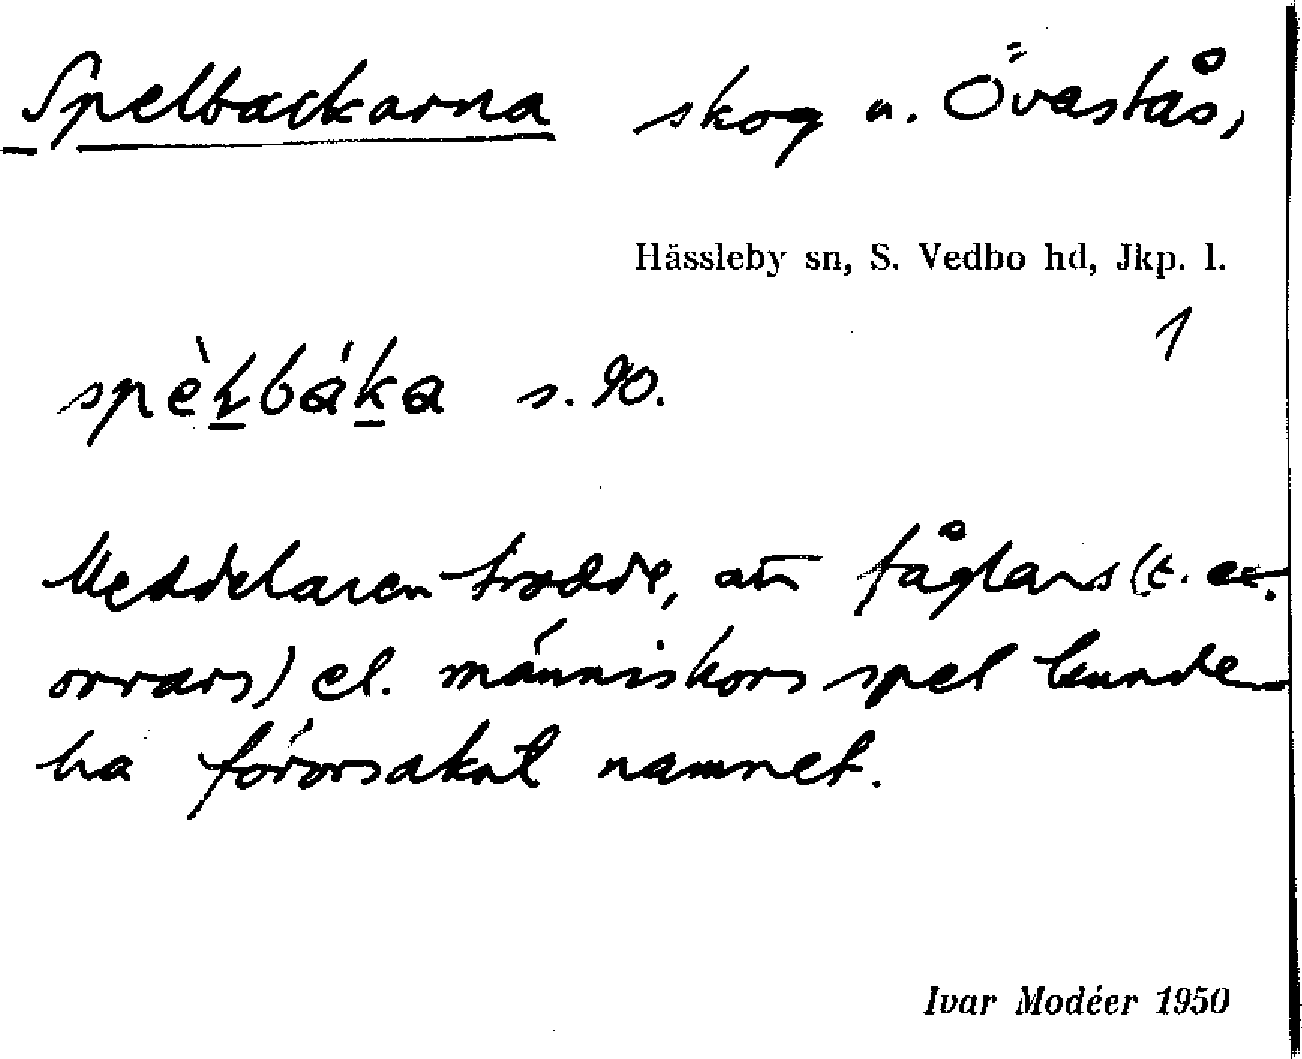 Spelbackarna skog u. Övastås,
Hässleby sn, S. Vedbo hd, Jkp. l.
1
spèḻbáḵa s. 90.
Meddelaren trodde, att fåglars (t. ex.
orrars) el. människors spel kunde
ha förorsakat namnet.
Ivar Modéer 1950